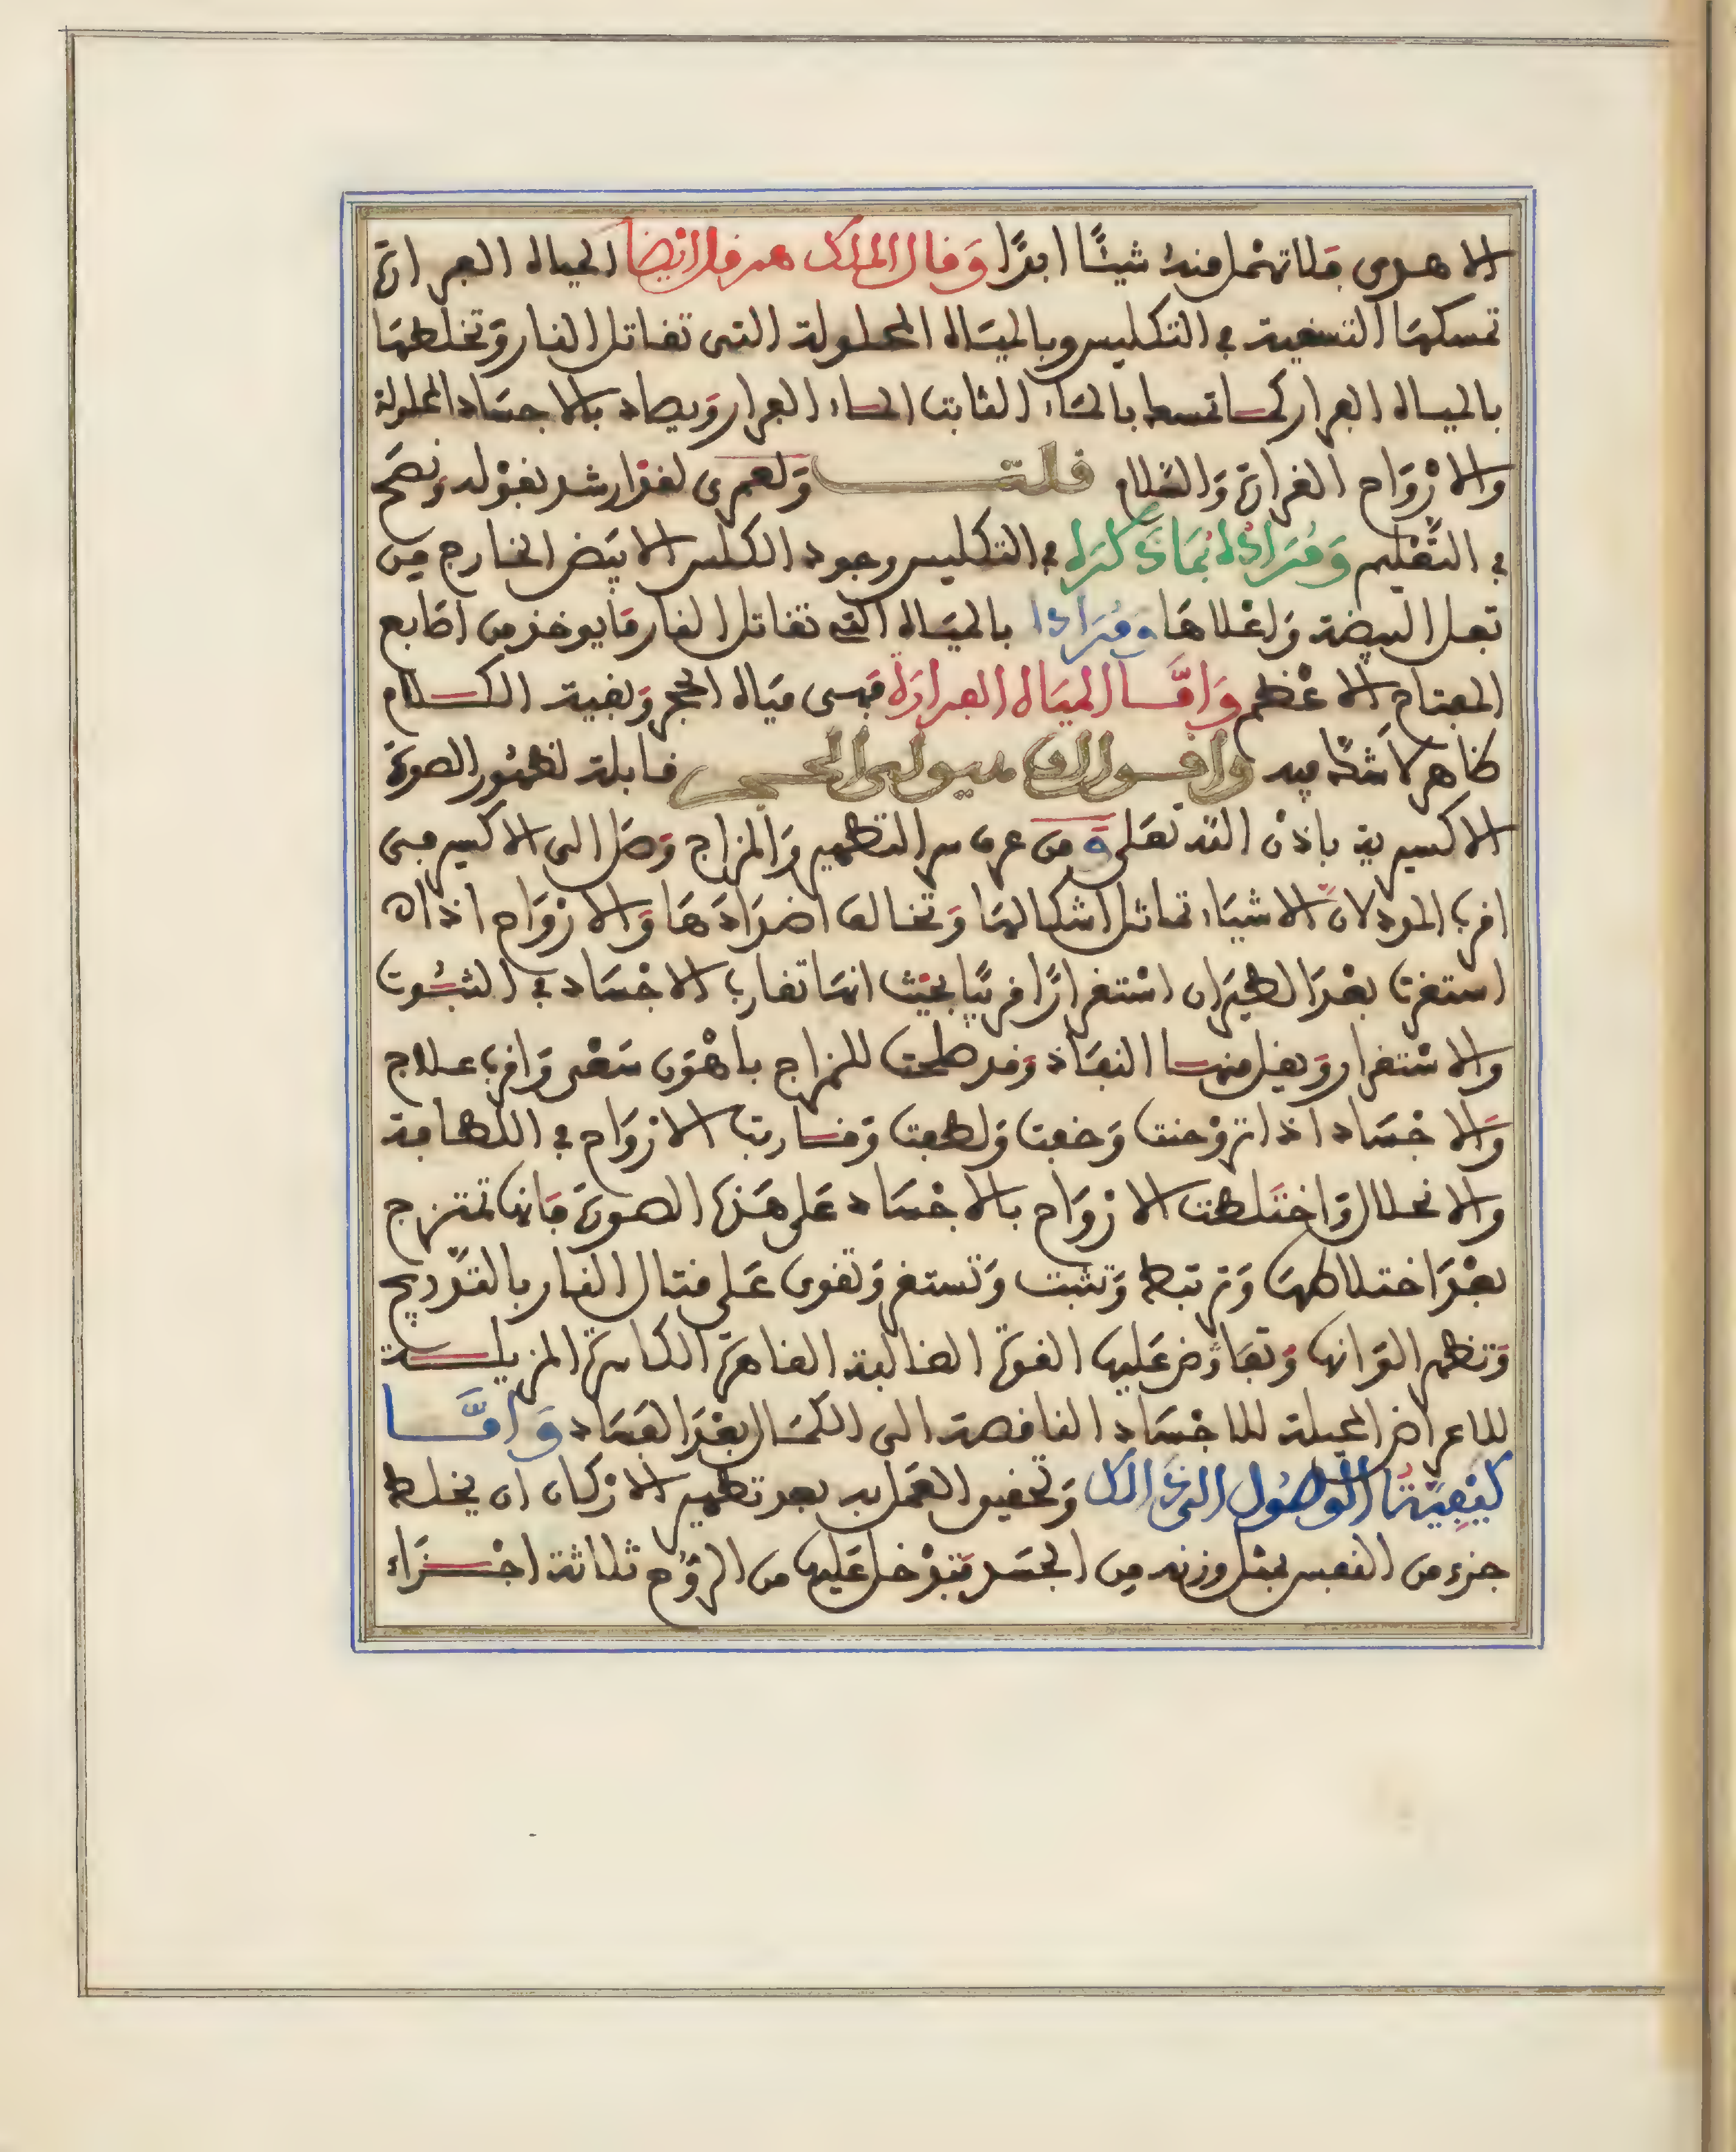 الاهوى فلا تهمل منه شيئًا ابدًا وَقال الملك هرقل ايضا المياه الفرارة
تمسكها التسقية في التكليس وبالمياه المحلولة التي تقاتل النار وَتخلطها
بالمياه الفرار كما تمسك بالماء الثابت الماء الفرار وَيصاد بالاجساد المحلولة
والارْوَاح الفرارة وَالسلام قلت وَلعمرى لقد ارشد بقوْله وَنصح
في التعْليم وَمُرَاده بمَا ذكرَه في التكليس وجود الكلس الابيَض الخارج من
تفل البيضة وَاغلاهَا وَمُرَاده بالميَاه التي تقاتل النار مَا يوخذ من اصَابع
المفتاح الاعْظم وَامَّا الميَاه الفرارَة فهى ميَاه الحجر وَبقية الكلام
ظاهر لا شكّ فيه وَاقول ان هيولى الحجر قابلة لظهُور الصورَة
الاكسيرية باذن الله تعَلى وَمن عرف سر التطهير وَالمزاج وَصَل الى الاكسير فمتى
اقرب المودلان الاشيَاء تماثل اشكالهَا وَتخالف اضدَادهَا وَالارْوَاح اذا
استقرت بعْدَ الطيَران اسْتقرارًا قريبًا بحيْث انهَا تقارب الاجْسَاد في الثبُوت
والاسْتقرار وَيقل منها النفاذ وَقد صلحت للمزاج باهْوَن سَعْى وَاقرب علاج
وَالاجْسَاد اذا تروْحنت وَخفت وَلطفت وَقاربت الارْوَاح في اللطافة
والانحلال وَاختلطت الارْوَاح بالاجْسَاد عَلى هَذه الصورَة فَانها تمتزج
بعْدَ اختلاطهَا وَترتبط وَتثبت وَتستقر وَتقوى عَلى قتال النار بالتدْريج
وَتظهر الوَانها وَتفاوض عَليها القوة الغالبة القاهرة الكاسرة المزيلة
للاعراض المحيلة للاجْسَاد الناقصة الى الكمَال بعْدَ الفسَاد وَامَّا
كيْفِيَّة الوصُول الى ذَلك وَتحقيق العمَل به بعد تطهير الارْكان ان يخلط
جزء من النفس بمثل وزنه من الجسَد فتدْخل عَليها من الرُّوح ثلاثة اجْزَاء